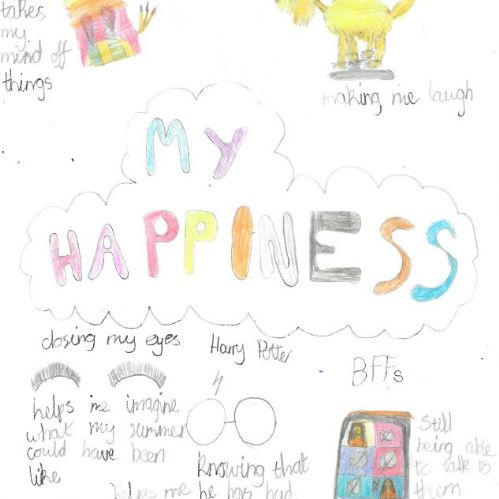 takes
my
mind off
things
making me laugh
MY
HAPPINESS
closing my eyes
helps me imagine
what my summer
could have been
like
Harry Potter
knowing that
helps me he has had
BFFs
Still
being able
to talk to
them